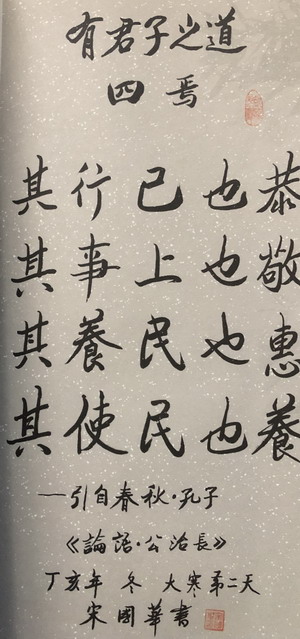 有君子之道
四焉
其行已也恭
其事上也敬
其養民也惠
其使民也養
——引自春秋·孔子
《論語·公治長》
丁亥年 冬 大寒第二天
宋國華書